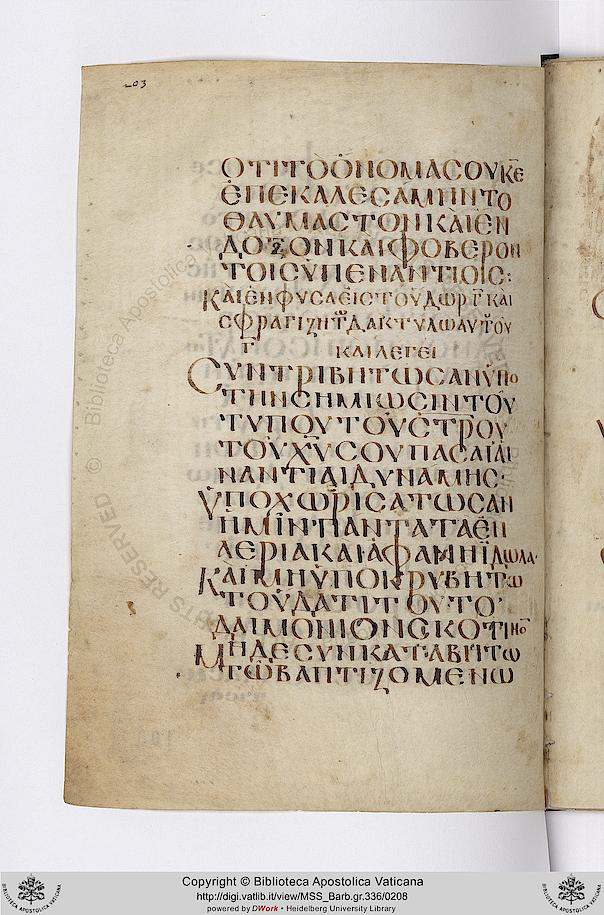 203
ΟΤΙ ΤΟ ΟΝΟΜΑ ΣΟΥ ΚΕ
ΕΠΕΚΑΛΕΣΑΜΗΝ ΤΟ
ΘΑΥΜΑΣΤΟΝ ΚΑΙ ΕΝ
ΔΟΞΟΝ ΚΑΙ ΦΟΒΕΡΟΝ
ΤΟΙΣ ΥΠΕΝΑΝΤΙΟΙΣ:
ΚΑΙ ΕΝΦΥΣΑ ΕΙΣ ΤΟ ΥΔΩΡ Γ ΚΑΙ
ΣΦΡΑΓΙΖΗ ΤΩ ΔΑΚΤΥΛΩ ΑΥΤΟΥ
Γ ΚΑΙ ΛΕΓΕΙ
ΣΥΝΤΡΙΒΗΤΩΣΑΝ ΥΠΟ
ΤΗΝ ΣΗΜΙΩΣΙΝ ΤΟΥ
ΤΥΠΟΥ ΤΟΥ ΣΤΡΟΥ
ΤΟΥ ΧΥ ΣΟΥ ΠΑΣΑΙ ΑΙ
ΝΑΝΤΙΑΙ ΔΥΝΑΜΗΣ:
ΥΠΟΧΩΡΙΣΑΤΩΣΑΝ
ΗΜΙΝ ΠΑΝΤΑ ΤΑ ΕΝ
ΑΕΡΙΑ ΚΑΙ ΑΦΑΜΗ ΙΔΩΛΑ·
ΚΑΙ ΜΗ ΥΠΟΚΡΥΒΗΤΩ
ΤΟ ΥΔΑΤΙ ΤΟΥΤΟ·
ΔΑΙΜΟΝΙΟΝ ΣΚΟΤΙΝΟ
ΜΗΔΕ ΣΥΝΚΑΤΑΒΗΤΩ
ΤΩ ΒΑΠΤΙΖΟΜΕΝΩ
RIGHTS RESERVED © Biblioteca Apostolica Vaticana
Copyright © Biblioteca Apostolica Vaticana
http://digi.vatlib.it/view/MSS_Barb.gr.336/0208
powered by DWork • Heidelberg University Library
BIBLIOTECA APOSTOLICA VATICANA
BIBLIOTECA APOSTOLICA VATICANA